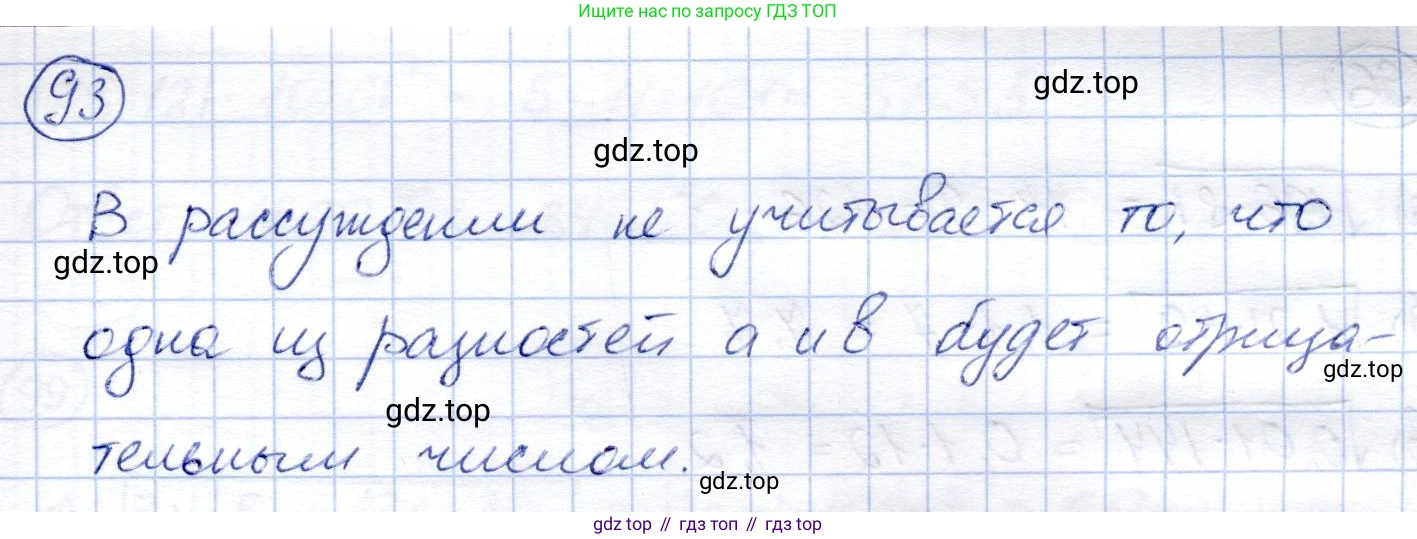 Ищите нас по запросу ГДЗ ТОП
93
gdz.top
gdz.top
В рассуждении не учитывается то, что
gdz.top
одна из разностей а и в будет отрица-
gdz.top
gdz.top
тельным числом.
gdz.top
gdz top // гдз топ // gdz top